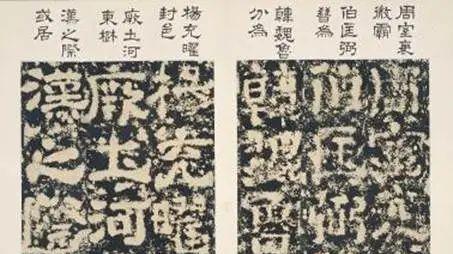 周室衰
微霸
伯匡弼
晉為
韓魏魯
分為
楊充曜
封邑
厥土河
東楚
漢之際
或居
周室衰
伯匡弼
韓魏魯
楊充曜
厥土河
漢之際